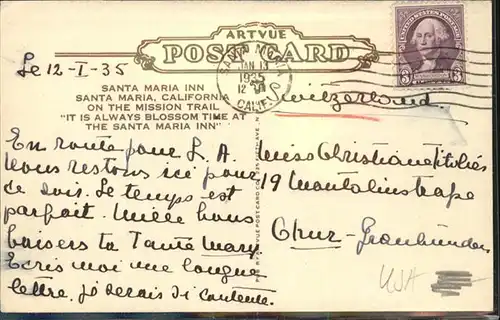 ARTVUE
POST CARD
Le 12-I-35
SANTA MARIA INN
SANTA MARIA, CALIFORNIA
ON THE MISSION TRAIL
"IT IS ALWAYS BLOSSOM TIME AT
THE SANTA MARIA INN"
JAN 13
1935
CALIF.
UNITED STATES POSTAGE
3
3
Switzerland.
En route pour L. A.
Nous restons ici pour
ce soir. Le temps est
parfait. Mille bons
baisers ta Tante Mary
Ecris moi une longue
lettre. je serais si contente.
Miss Christiane
19
Chur - Graubünden
USA